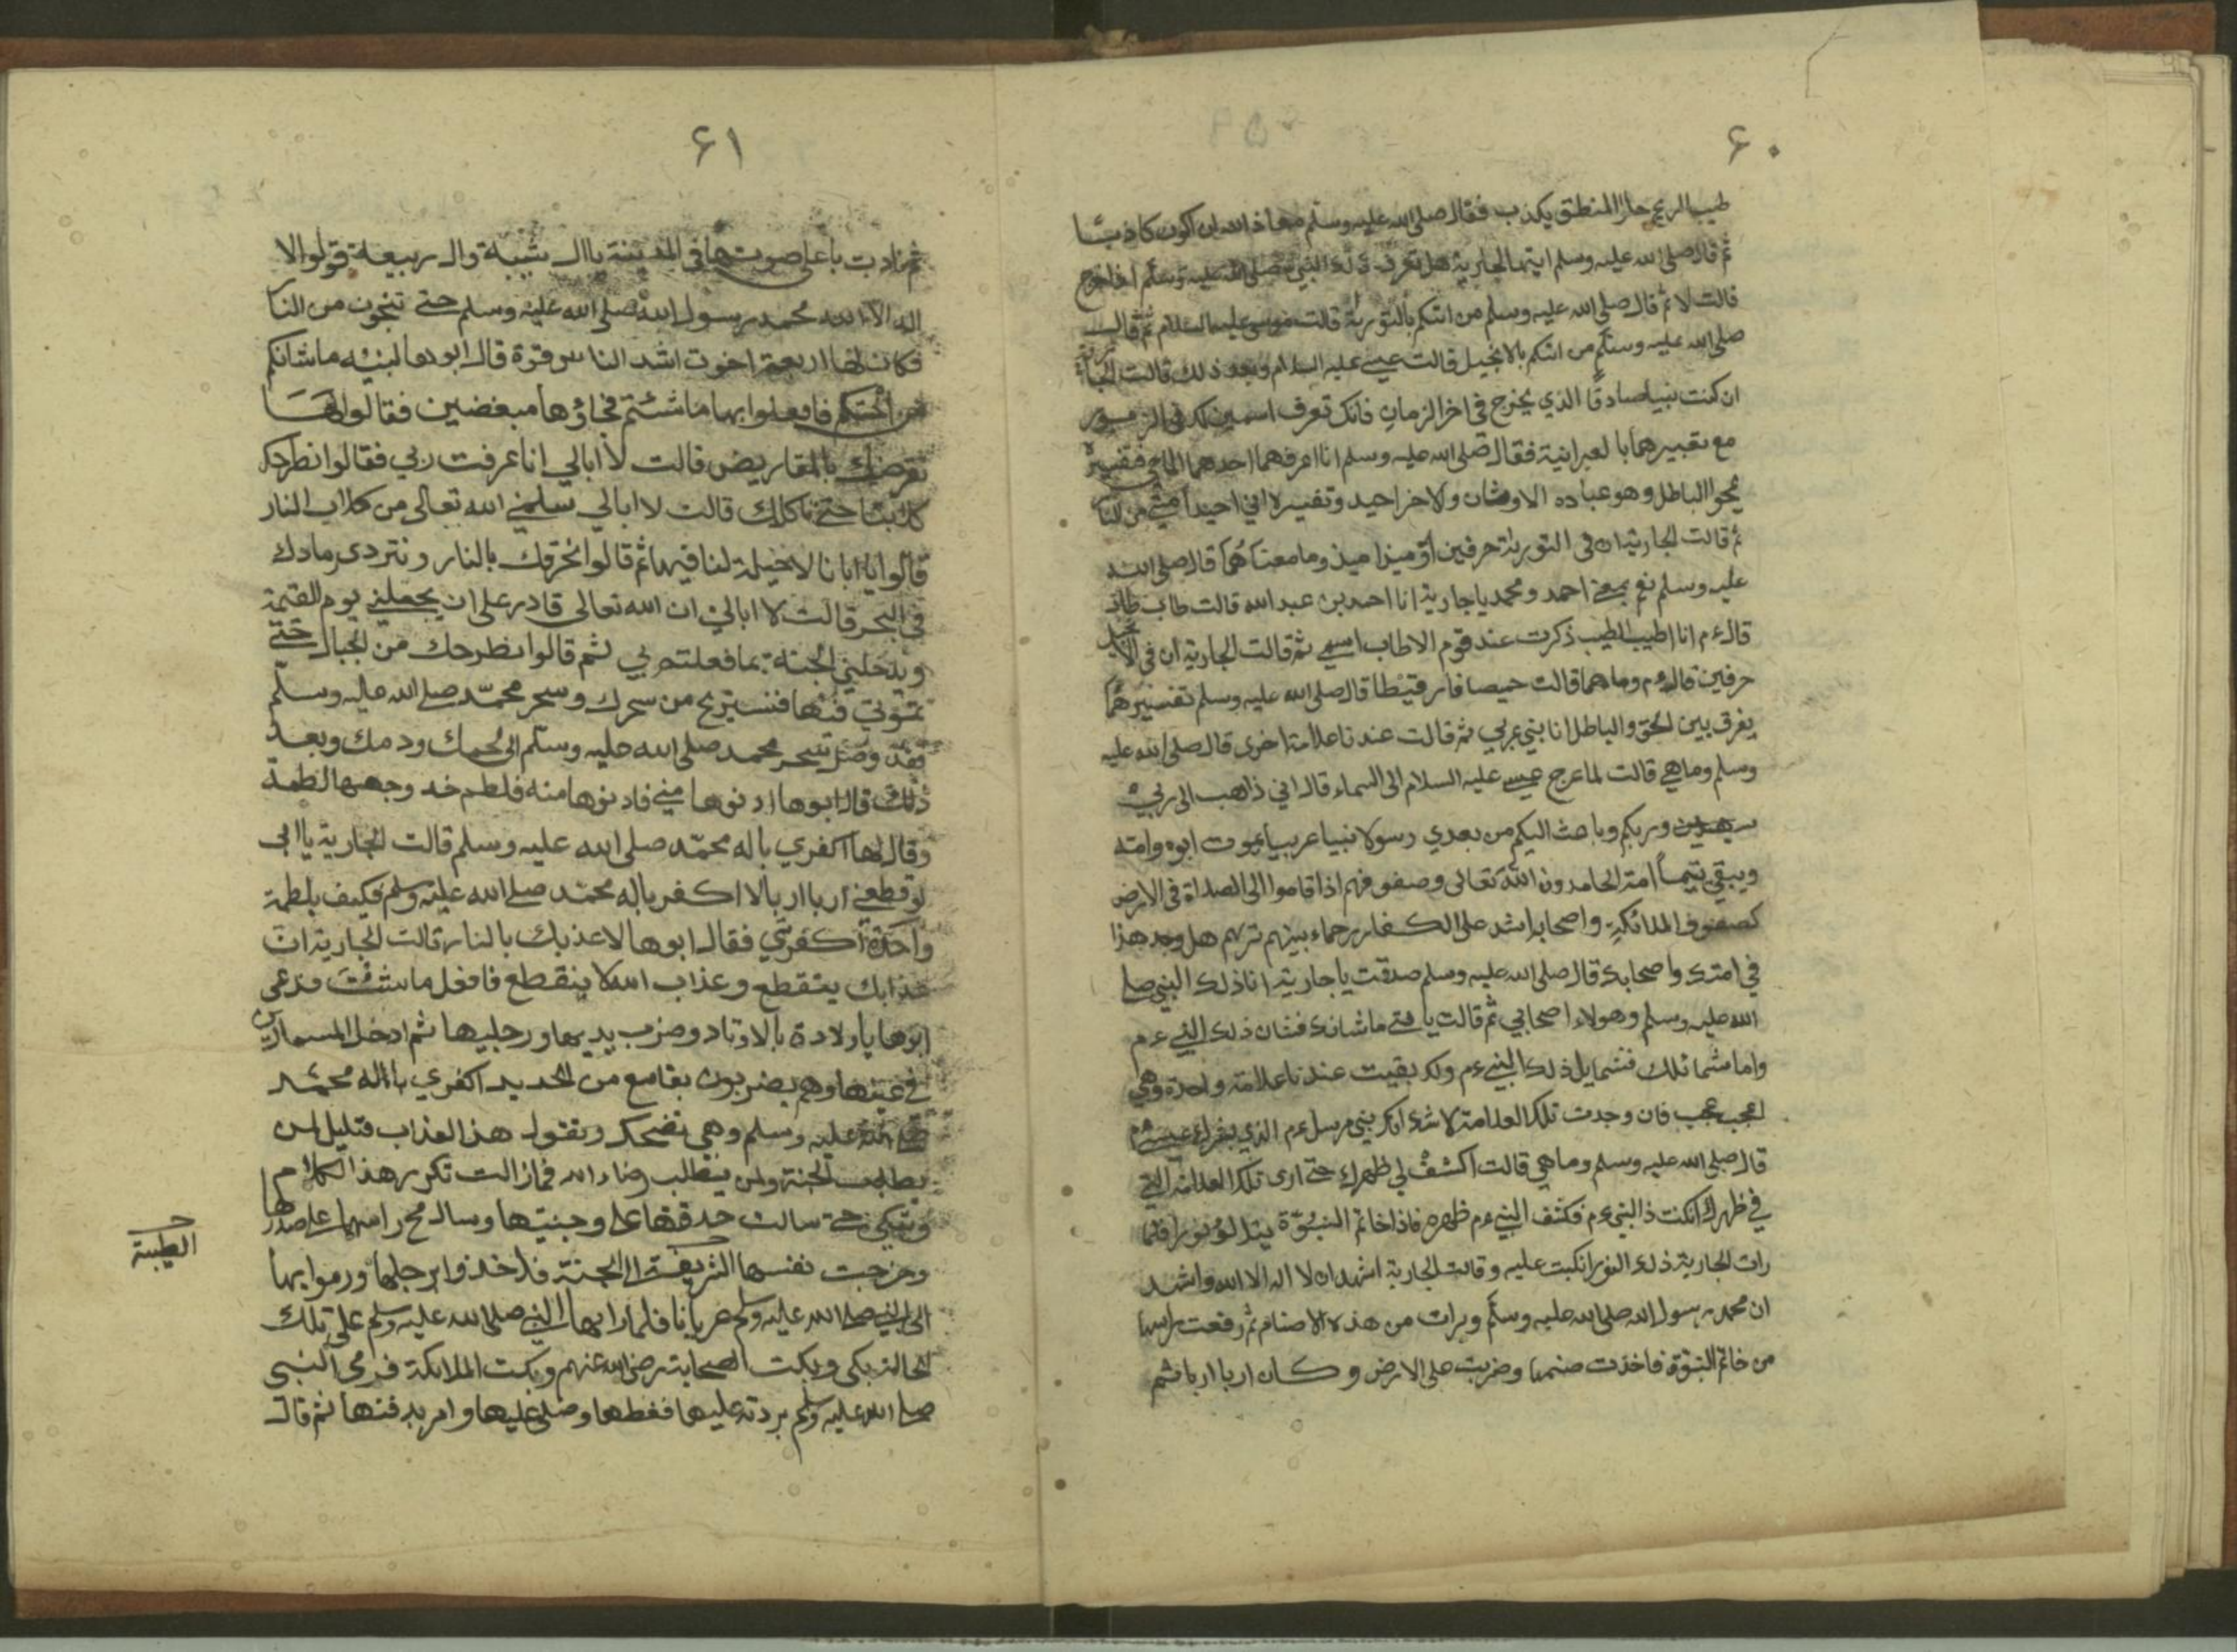 ۶۰
طيب الريح حلو المنطق يكذب فقال صلى الله عليه وسلم معاذ الله ان اكون كاذبا
ثم قال صلى الله عليه وسلم ايتها الجارية هل تعرف ذلك النبي صلى الله عليه وسلم اذا خرج
قالت لا ثم قال صلى الله عليه وسلم من اتتكم بالتورىة قالت موسى عليه السلام ثم قال
صلى الله عليه وسلم من اتتكم بالانجيل قالت عيسى عليه السلام وبعد ذلك قالت الجارية
ان كنت نبيا صادقا الذي يخرج في اخر الزمان فانك تعرف اسمين لك في الزبور
مع تفسيرهما بالعبرانية فقال صلى الله عليه وسلم انا اعرفهما احدهما الماحي فتفسيره
يمحوا الباطل وهو عباده الاوثان ولاخر احيد وتفسيره اني احيد امتي من النار
ثم قالت الجارية ان في التورىة حرفين اوميذا ميذ وما معناهما قال صلى الله
عليه وسلم نعم بمعنى احمد ومحمد يا جارية انا احمد بن عبد الله قالت طاب طاب
قال ءم انا اطيب الطيب ذكرت عند قوم الاطاب اسمي ثم قالت الجارية ان في الانجيل
حرفين قال ءم وما هما قالت حميصا فارقتيطا قال صلى الله عليه وسلم تفسيرهما
يفرق بين الحق والباطل انا نبي عربي ثم قالت عندنا علامة اخرى قال صلى الله عليه
وسلم وما هي قالت لما عرج عيسى عليه السلام الى السماء قال اني ذاهب الى ربي
سيهدين وربكم وباعث اليكم من بعدي رسولا نبيا عربيا يموت ابوه وامه
ويبقى يتيما امته الحامدون الله تعالى وصفوفهم اذا قاموا الى الصلاة في الارض
كصفوف الملائكة واصحابه اشد على الكفار رحماء بينهم تريهم هل وجد هذا
في امتك واصحابك قال صلى الله عليه وسلم صدقت يا جارية انا ذلك النبي صلى
الله عليه وسلم وهولاء اصحابي ثم قالت يا فتى ما شانك فشان ذلك النبي ءم
واما شمائلك فشمايل ذلك النبي ءم ولكن بقيت عندنا علامة واحدة وهي
اعجب عجب فان وجدت تلك العلامة لا شك انك نبي مرسل ءم الذي بشرك عيسى ءم
قال صلى الله عليه وسلم وما هي قالت اكشف لي ظهرك حتى ارى تلك العلامة التي
في ظهرك انكنت ذا النبي ءم فكشف النبي ءم ظهره فاذا خاتم النبوة يتلالؤ نورا فلما
رات الجارية ذلك النور انكبت عليه وقالت الجارية اشهد ان لا اله الا الله واشهد
ان محمد رسول الله صلى الله عليه وسلم وبرات من هذه الاصنام ثم رفعت راسها
من خاتم النبوة فاخذت صنمها وضربت على الارض وكان اربا اربا ثم
۶۱
ثم نادت باعلى صوتها في المدينة يا ال شيبة وال ربيعة قولوا لا
اله الا الله محمد رسول الله صلى الله عليه وسلم حتى تنجون من النار
فكان لها اربعة اخوت اشد الناس قوة قال ابوها لبنيه ما شانكم
من اختكم فافعلوا بها ما شئتم فجاؤها مبغضين فقالوا لها
نقرضك بالمقاريض قالت لا ابالي انا عرفت ربي فقالوا نطرحك
كلابنا حتى تاكلك قالت لا ابالي سلمني الله تعالى من كلاب النار
قالوا يا ابانا لا حيلة لنا فيها ثم قالوا نحرقك بالنار ونتردى رمادك
في البحر قالت لا ابالي ان الله تعالى قادر على ان يجعلني يوم القيمة
ويدخلني الجنة بما فعلتم بي ثم قالوا نطرحك من الجبال حتى
تموتي فيها فنستريح من سحرك وسحر محمد صلى الله عليه وسلم
فقد وصل سحر محمد صلى الله عليه وسلم الى لحمك ودمك وبعد
ذلك قال ابوها ادنوها مني فادنوها منه فلطم خد وجهها لطمة
وقال لها اكفري باله محمد صلى الله عليه وسلم قالت الجارية يا ابي
لو قطعني اربا اربا لا اكفر باله محمد صلى الله عليه وسلم فكيف بلطمة
واحدة اكفرني فقال ابوها لاعذبك بالنار قالت الجارية ان
عذابك ينقطع وعذاب الله لا ينقطع فافعل ما شئت فدعى
ابوها باولاده بالاوتاد وضرب يديها ورجليها ثم ادخل المسمارين
في عينها وهم يضربون بقامع من الحديد اكفري باله محمد
صلى الله عليه وسلم وهي تضحك وتقول هذا العذاب قليل لمن
يطلب الجنة ولمن يطلب رضاء الله فمازالت تكرر هذا الكلام
وتبكي حتى سالت حدقتها على وجنتيها وسال مخ راسها على صدرها
وخرجت نفسها الشريفة الى الجنة فاخذوا برجلها ورموا بها
الى النبي صلى الله عليه وسلم عريانا فلما راها النبي صلى الله عليه وسلم على تلك
الحالة بكى وبكت الصحابة رضي الله عنهم وبكت الملائكة فرمى النبي
صلى الله عليه وسلم بردته عليها فغطها وصلى عليها وامر بدفنها ثم قال
الطيبة